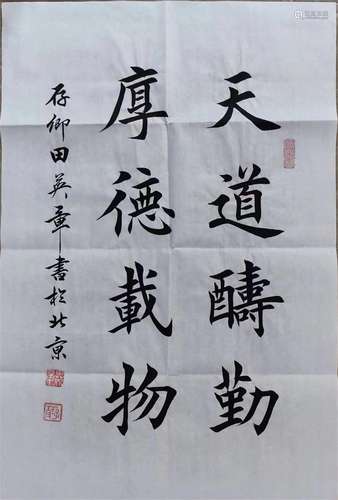 天道醻勤
厚德載物
存卿田英章書於北京